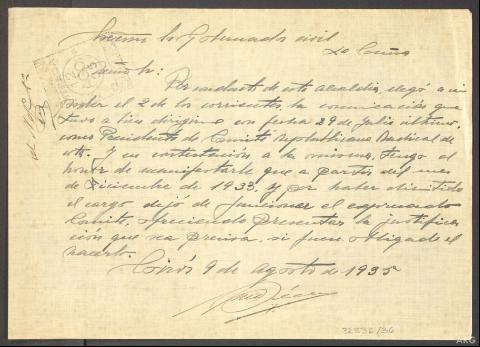 Excmo Sr Gobernador civil
La Coruña
Señor:
Por conducto de esta alcaldía, llegó a mi
poder el 2 de los corrientes, la comunicación que
tuvo a bien dirigirme con fecha 29 de Julio último,
como Presidente de Comité republicano Radical de
esta. Y en contestación a la misma, tengo el
honor de manifestarle que a partir del mes
de Diciembre de 1933, y por haber dimitido
el cargo dejó de funcionar el expresado
Comité, ofreciendo presentar la justifica
ción que sea precisa, si fuere obligado el
hacerlo.
Coirós 9 de Agosto de 1935
32836/36
AKG